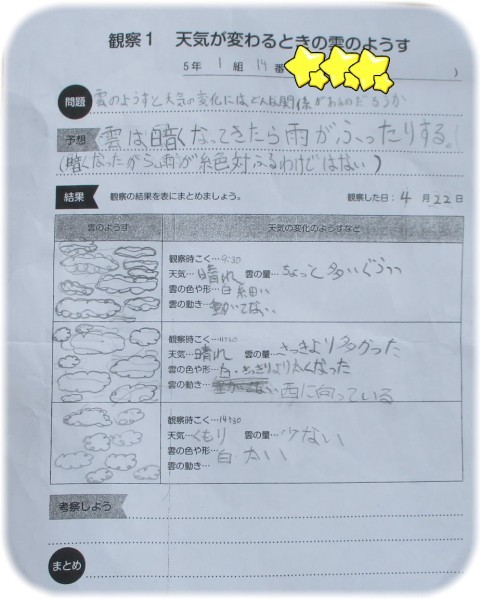 観察1 天気が変わるときの雲のようす
5年 1組 14番 )
問題 雲のようすと天気の変化には、どんな関係があるのだろうか
予想 雲は暗くなってきたら雨がふったりする。
(暗くなったから、雨が絶対ふるわけではない)
結果 観察の結果を表にまとめましょう。 観察した日:4月22日
雲のようす 天気の変化のようすなど
観察時こく…9:30
天気…晴れ 雲の量…ちょっと多いぐらい
雲の色や形…白 細い
雲の動き…動いてない
観察時こく…
天気…晴れ 雲の量…さっきより多かった
雲の色や形…白・さっきより太くなった
雲の動き…西に向っている
観察時こく…14:30
天気…くもり 雲の量…少ない
雲の色や形…白 太い
雲の動き…
考察しよう
まとめ